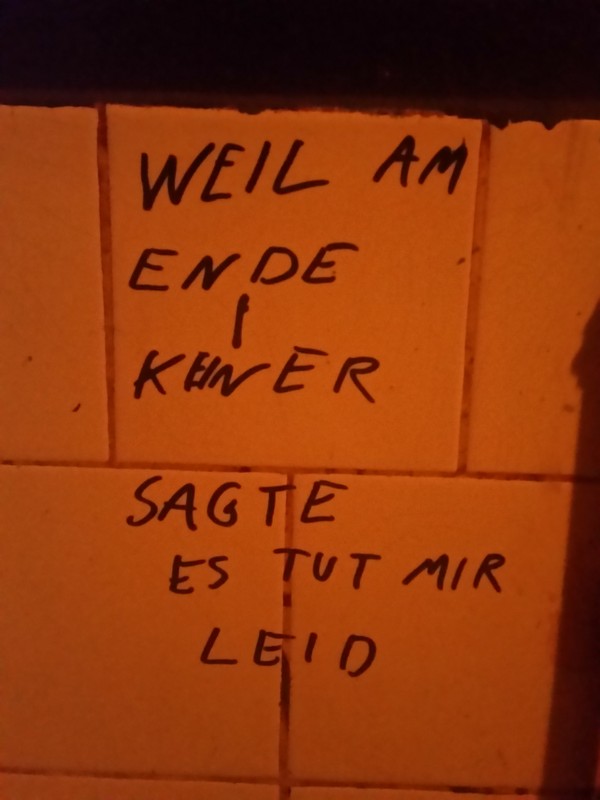 WEIL AM
ENDE
KEINER
SAGTE
ES TUT MIR
LEID